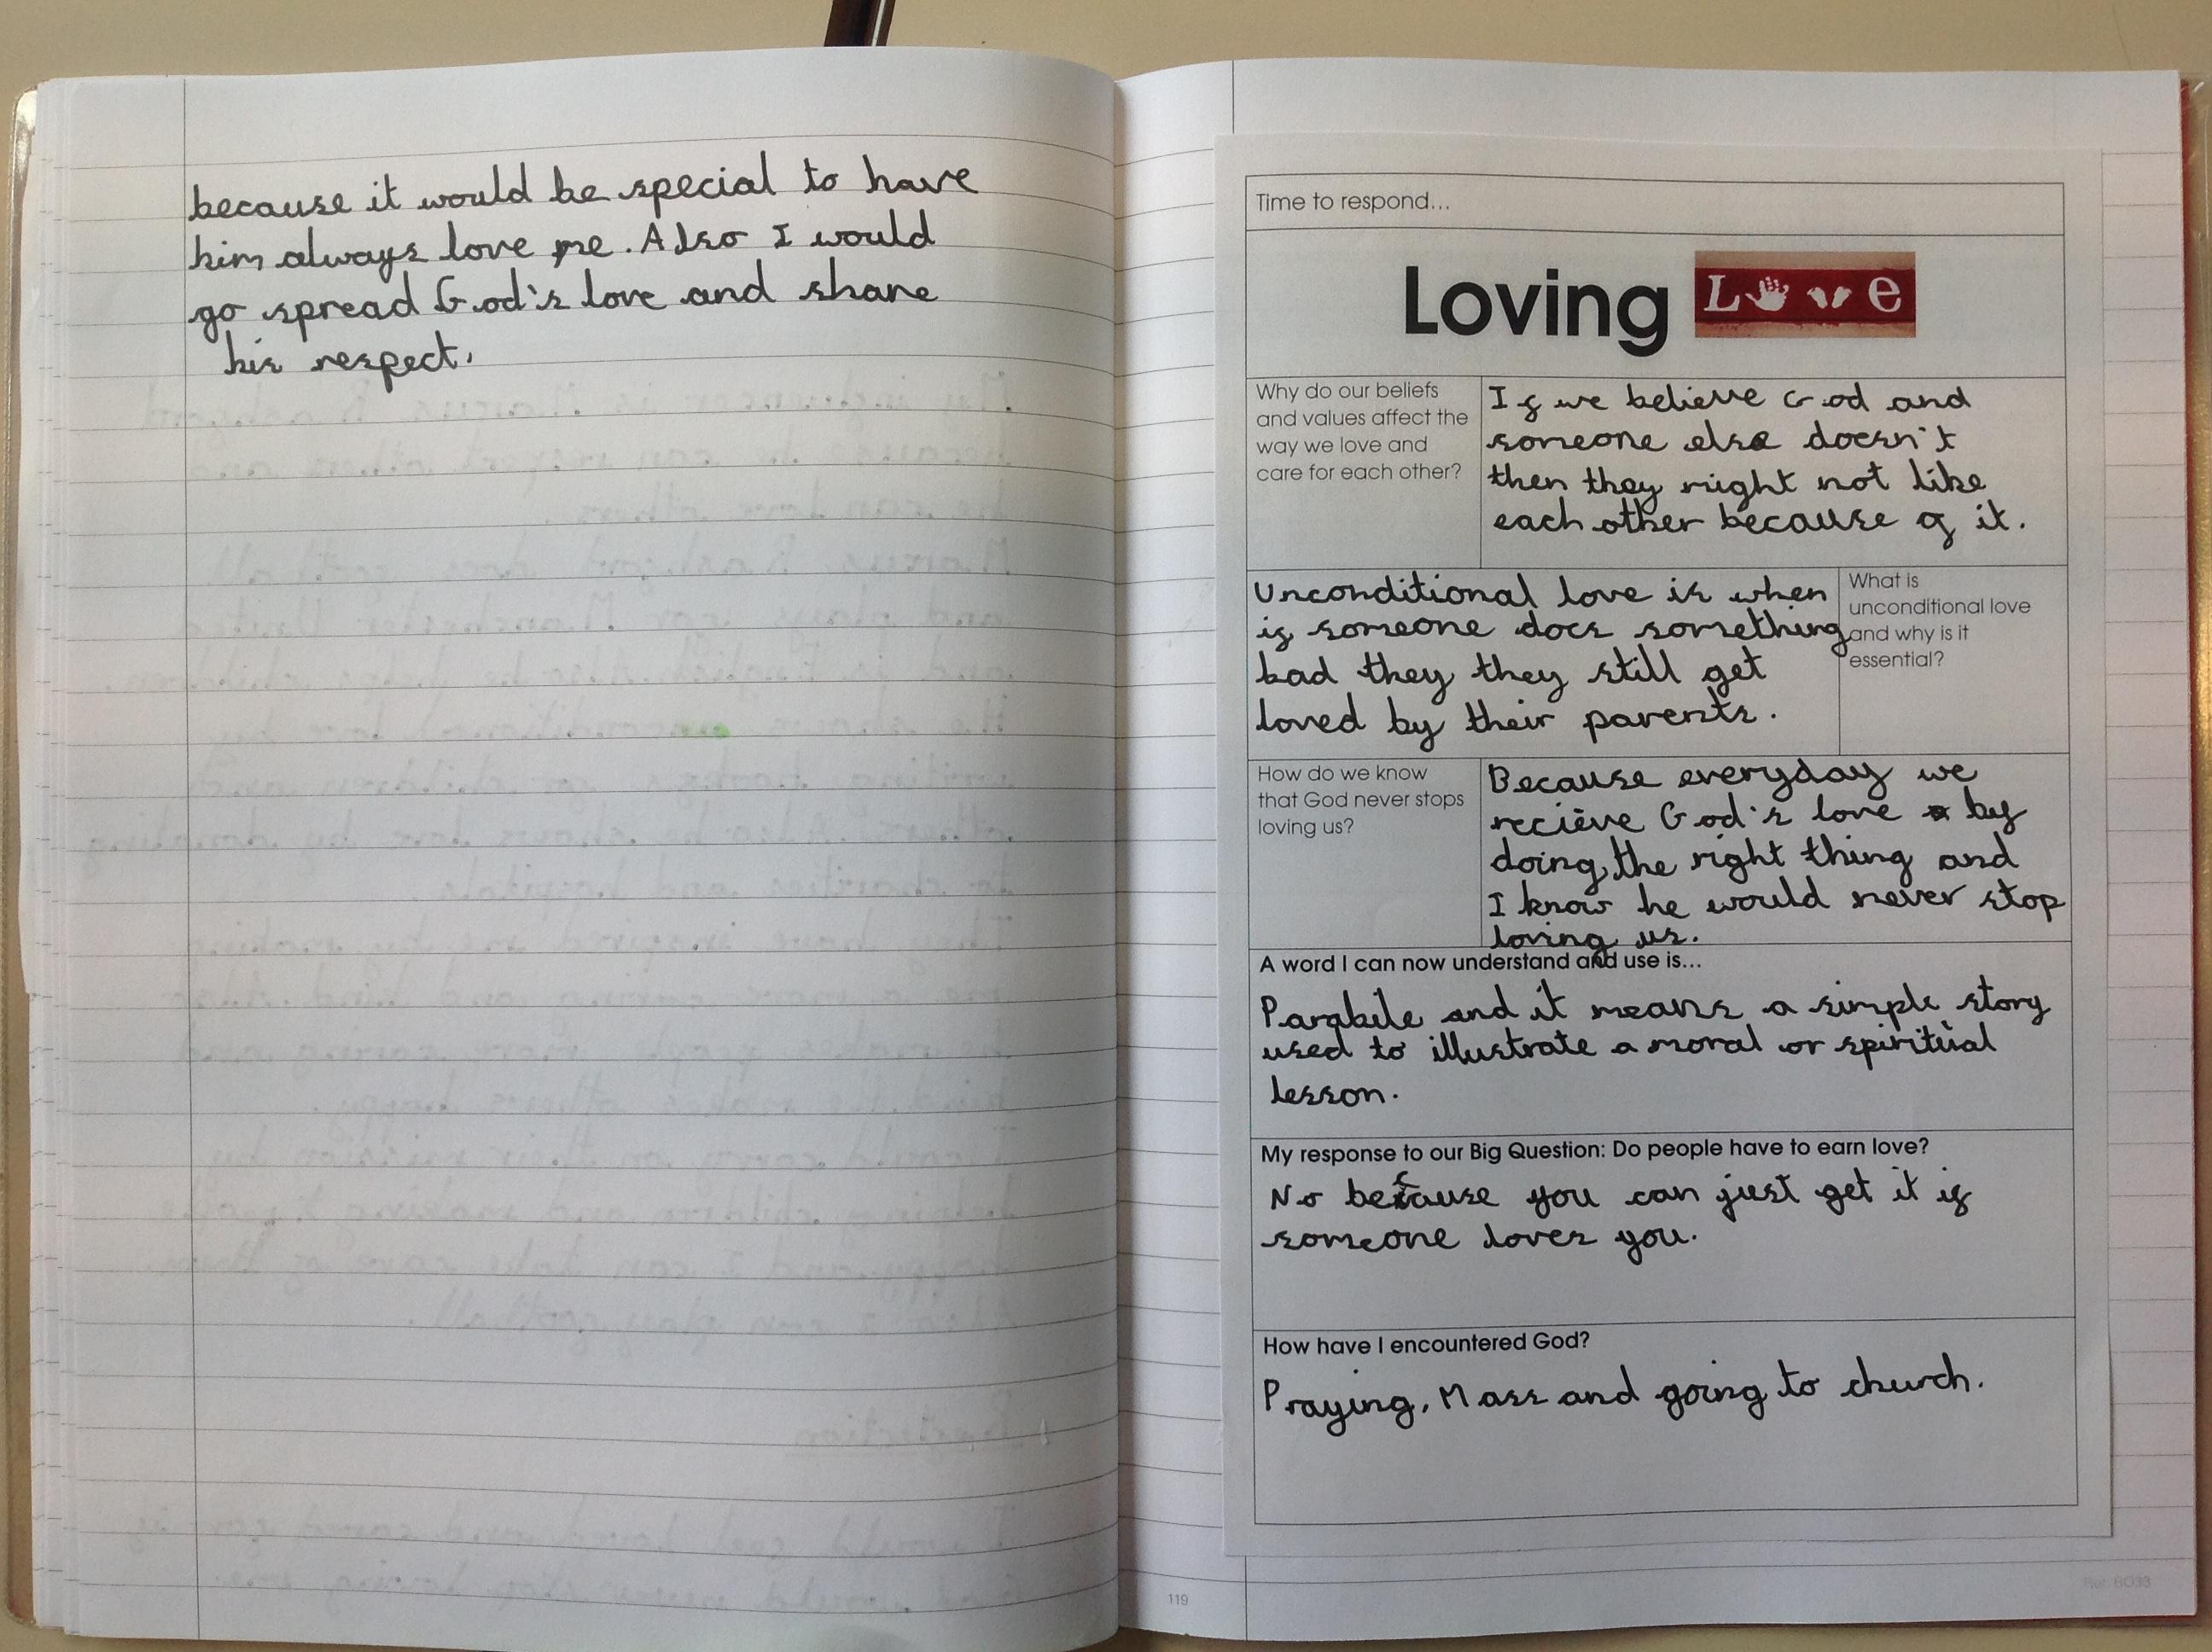 because it would be special to have
him always love me. Also I would
go spread God's love and share
his respect.
Time to respond...
Loving Love
Why do our beliefs
and values affect the
way we love and
care for each other?
If we believe God and
someone else doesn't
then they might not like
each other because of it.
Unconditional love is when
if someone does something
bad they they still get
loved by their parents.
What is
unconditional love
and why is it
essential?
How do we know
that God never stops
loving us?
Because everyday we
recieve God's love by
doing the right thing and
I know he would never stop
loving us.
A word I can now understand and use is...
Parabile and it means a simple story
used to illustrate a moral or spiritual
lesson.
My response to our Big Question: Do people have to earn love?
No because you can just get it if
someone loves you.
How have I encountered God?
Praying, Mass and going to church.
119